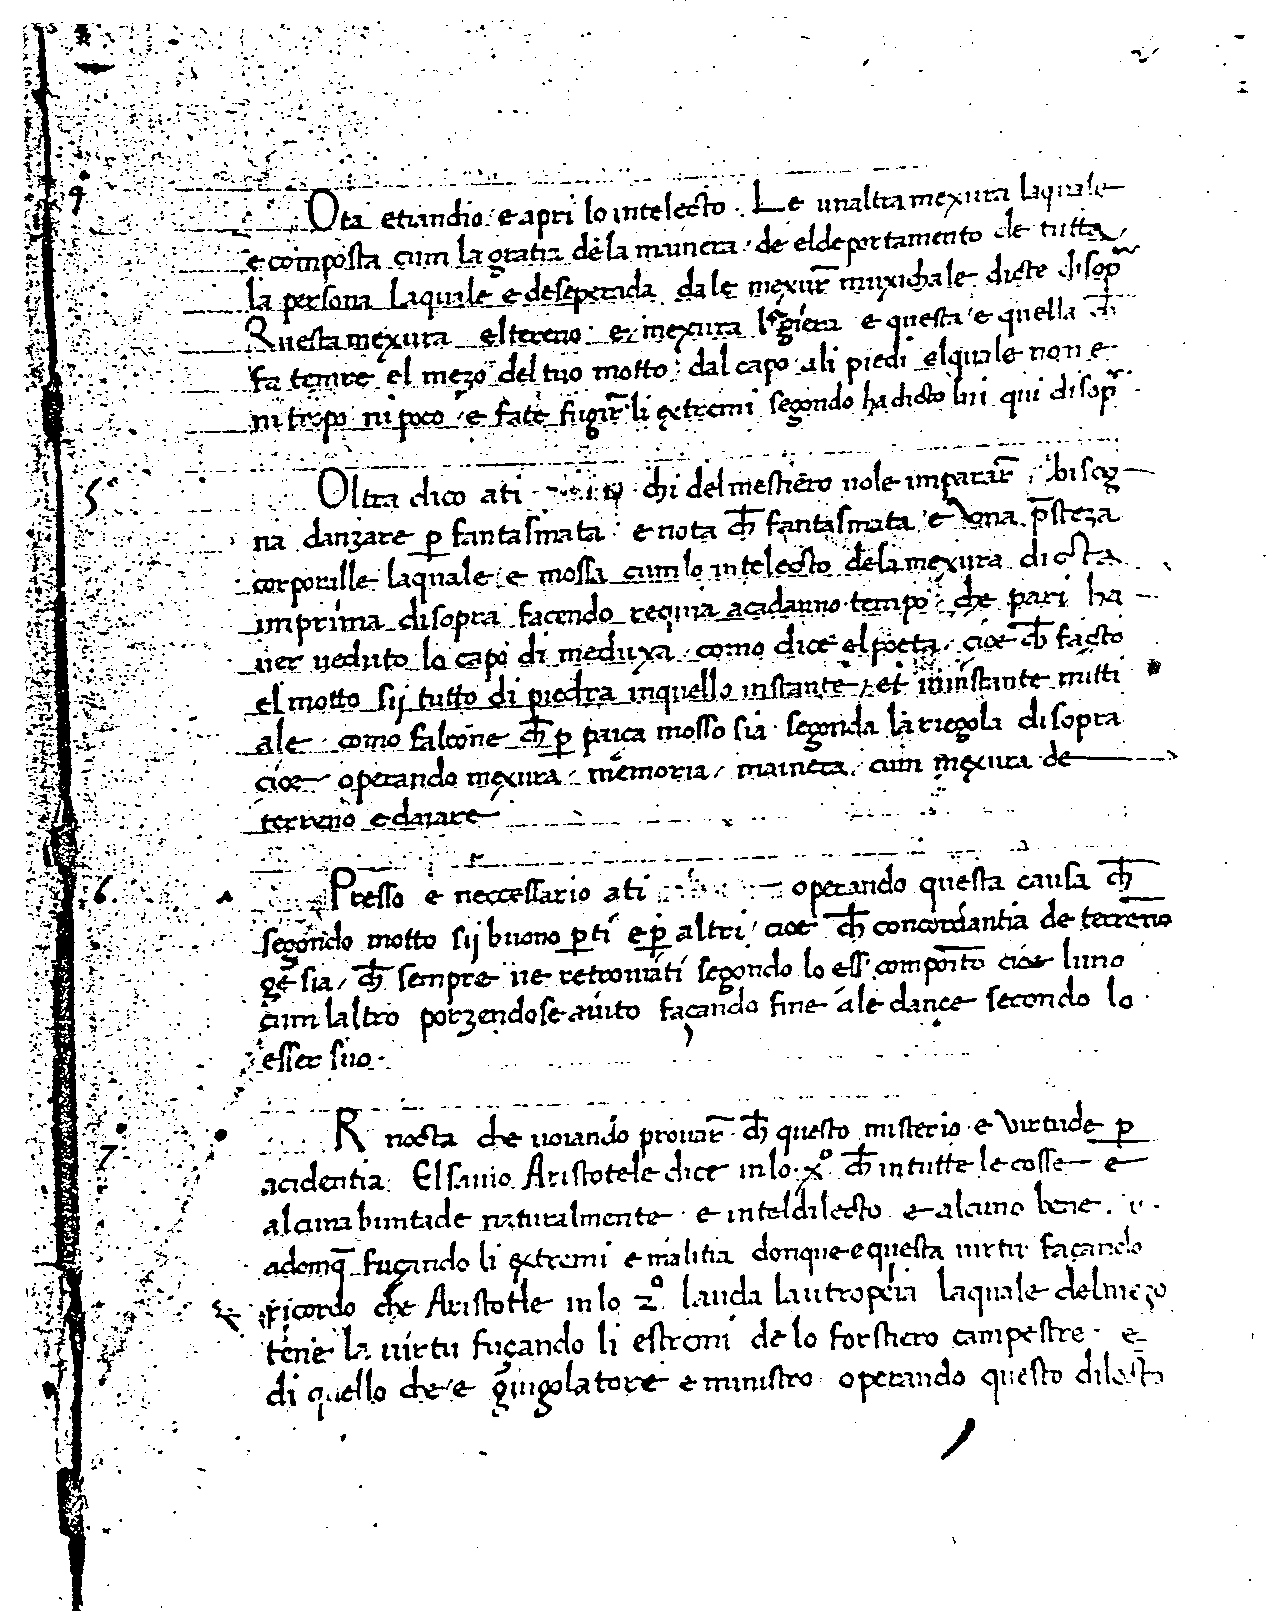 4
Ota etiandio e apri lo intelecto. Le unaltra mexura laquale
e composta cum la gratia de la mainera de el deportamento de tutta
la persona laquale e deseperada da le mexur̄ muxichale dicte disop̄
Questa mexura el tereno e mexura legiera e questa e quella ch̄
fa tenire el mezo del tuo motto dal capo ali piedi elquale non e
ni tropo ni poco e fate fugir̄ li extremi segondo ha dicto lui qui disop̄
5
Oltra dico a ti chi del mestiero uole imparar̄ bisog
na danzare p̱ fantasmata e nota ch̄ fantasmata e una p̄steza
corporalle laquale e mossa cum lo intelecto de la mexura dicta
imprima disopra facendo requia acadauno tempo che pari ha
uer ueduto lo capo di meduxa como dice el poeta cioe ch̄ facto
el motto sij tutto di piedra inquello instante et in instante mitti
ale como falcone ch̄ p̱ paica mosso sia segonda la riegola disopra
cioe operando mexura memoria mainera cum mexura de
terreno e daiare
6.
Presso e neccessario a ti operando questa causa ch̄
segondo motto sij buono p̱ ti e p̱ altri cioe ch̄ concordantia de terreno
ge sia ch̄ sempre ue retrouiati segondo lo ess̄ componito cioe luno
cum laltro porzendose aiuto façando fine ale dance secondo lo
esser suo.
7
R nocta che uoiando prouar̄ ch̄ questo misterio e virtude p̱
acidentia. El sauio Aristotele dice in lo Xº ch̄ in tutte le cosse e
alcuna buntade naturalmente e in tel dilecto e alcuno bene.
adomq̄ fuçando li extremi e malitia donque e questa uirtu façando
ricordo che Aristotle in lo 2º lauda lautropelia laquale del mezo
tene la uirtu fuçando li estremi de lo forstiero campestre e
di quello che e giugolatore e ministro operando questo dilecto